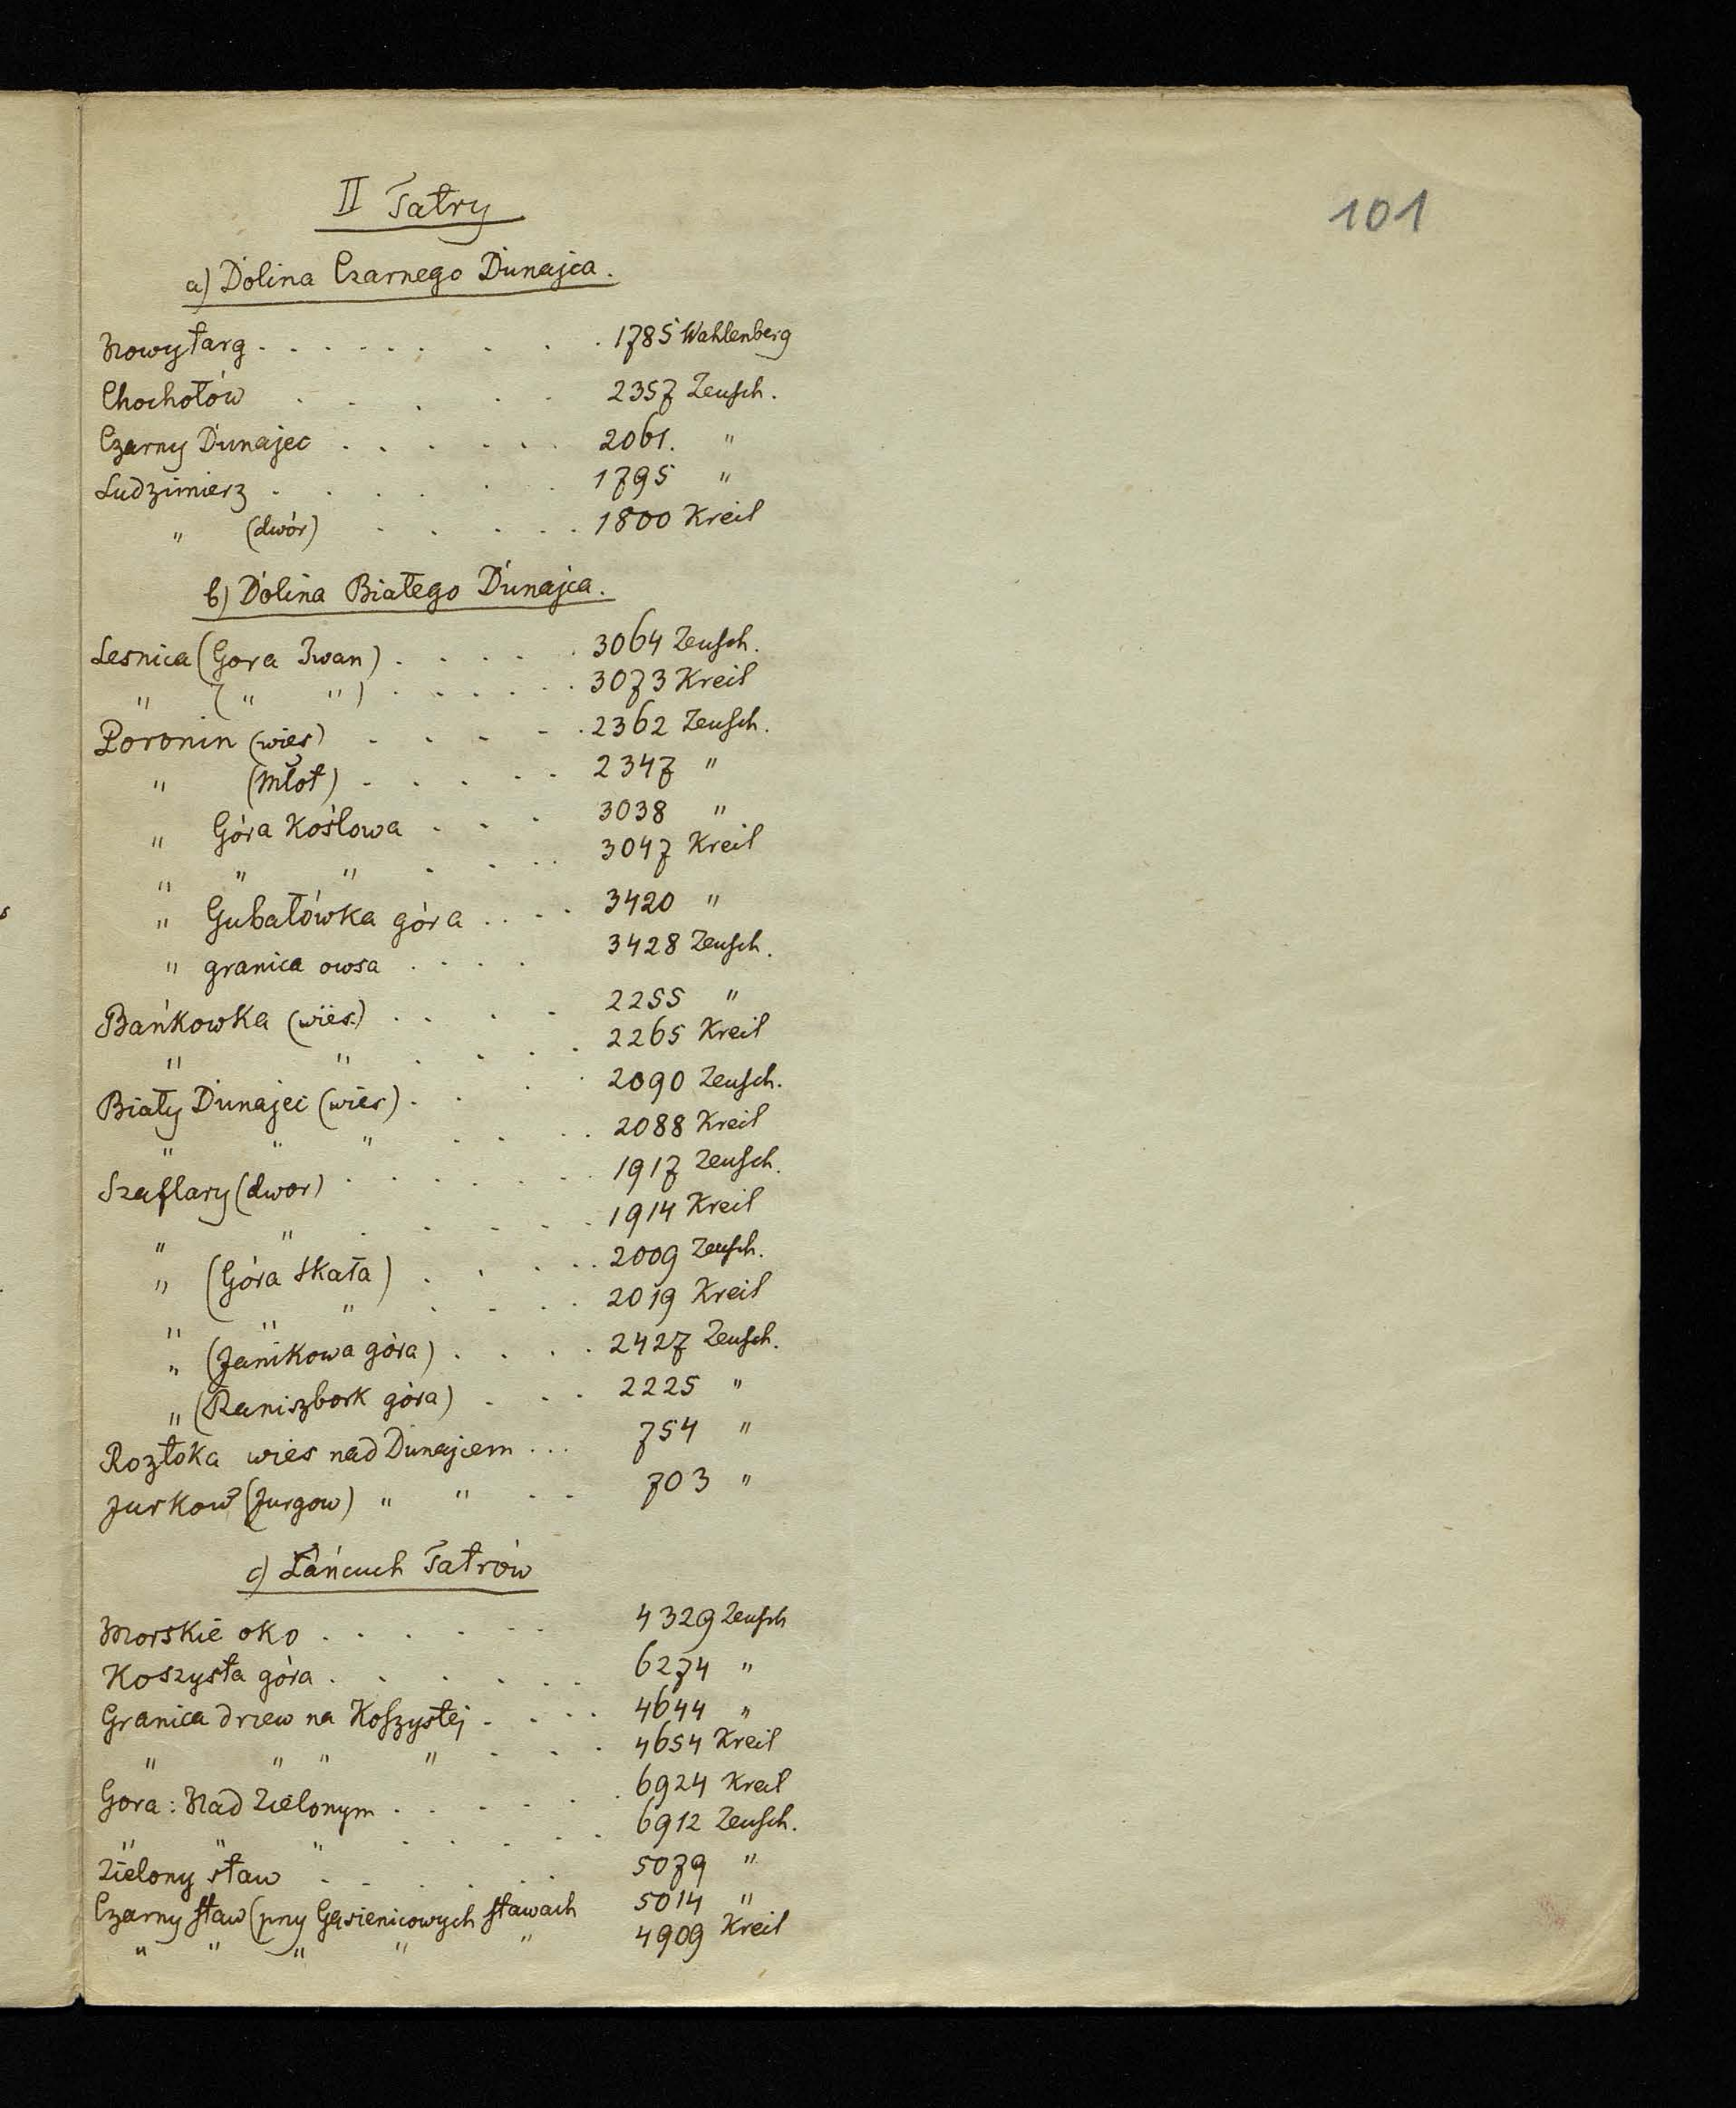 101
II Tatry
a) Dolina Czarnego Dunajca.
Nowytarg . . . . . . . . . 1785 Wahlenberg
Chochołów . . . . . . 2357 Zeusch.
Czarny Dunajec . . . . . . 2061. "
Ludzimierz . . . . . . 1795 "
" (dwór) . . . . . 1800 Kreil
b) Dolina Białego Dunajca.
Lesnica (Gora Iwan) . . . . . 3064 Zeusch.
" ( " " ) . . . . . . 3073 Kreil
Poronin (wieś) . . . . . 2362 Zeusch.
" (Młot) . . . . . 2347 "
" Góra Kośłowa . . . 3038 "
" " " . . . . 3047 Kreil
" Gubałówka góra . . . . 3420 "
" granica owsa . . . . 3428 Zeusch.
Bańkowka (wieś) . . . . 2255 "
" " . . . . 2265 Kreil
Biały Dunajec (wieś) . . . . 2090 Zeusch.
" " " . . . . 2088 Kreil
Szaflary (dwor) . . . . . . . 1917 Zeusch.
" " . . . . . 1914 Kreil
" (Góra Skała) . . . . . 2009 Zeusch.
" " " . . . . 2019 Kreil
" (Janikowa góra) . . . . 2427 Zeusch.
" (Raniszbork góra) . . . 2225 "
Roztoka wieś nad Dunajcem . . . 754 "
Jurkow? (Jurgow) " " . . 703 "
c) Łańcuch Tatrów
Morskie oko . . . . . . 4329 Zeusch
Koszysta góra . . . . . . 6274 "
Granica drzew na Koszystej . . . . 4644 "
" " " " . . . 4654 Kreil
Gora: Nad Zielonym . . . . . . 6924 Kreil
" " " . . . . . 6912 Zeusch.
Zielony staw . . . . . . 5079 "
Czarny staw (przy Gąsienicowych stawach 5014 "
" " " " " 4909 Kreil